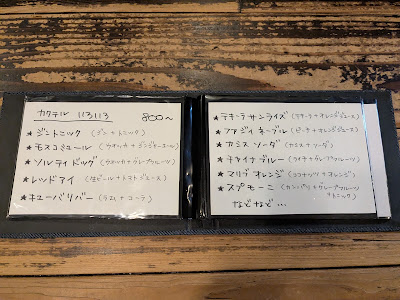 カクテル いろいろ 800〜
★ ジントニック (ジン+トニック)
★ モスコミュール (ウオッカ+ジンジャーエール)
★ ソルティドッグ (ウオッカ+グレープフルーツ)
★ レッドアイ (生ビール+トマトジュース)
★ キューバリバー (ラム+コーラ)
★ テキーラサンライズ (テキーラ+オレンジジュース)
★ ファジィネーブル (ピーチ+オレンジジュース)
★ カシスソーダ (カシス+ソーダ)
★ チャイナブルー (ライチ+グレープフルーツ)
★ マリブオレンジ (ココナッツ+オレンジ)
★ スプモーニ (カンパリ+グレープフルーツ
+トニック)
などなど...